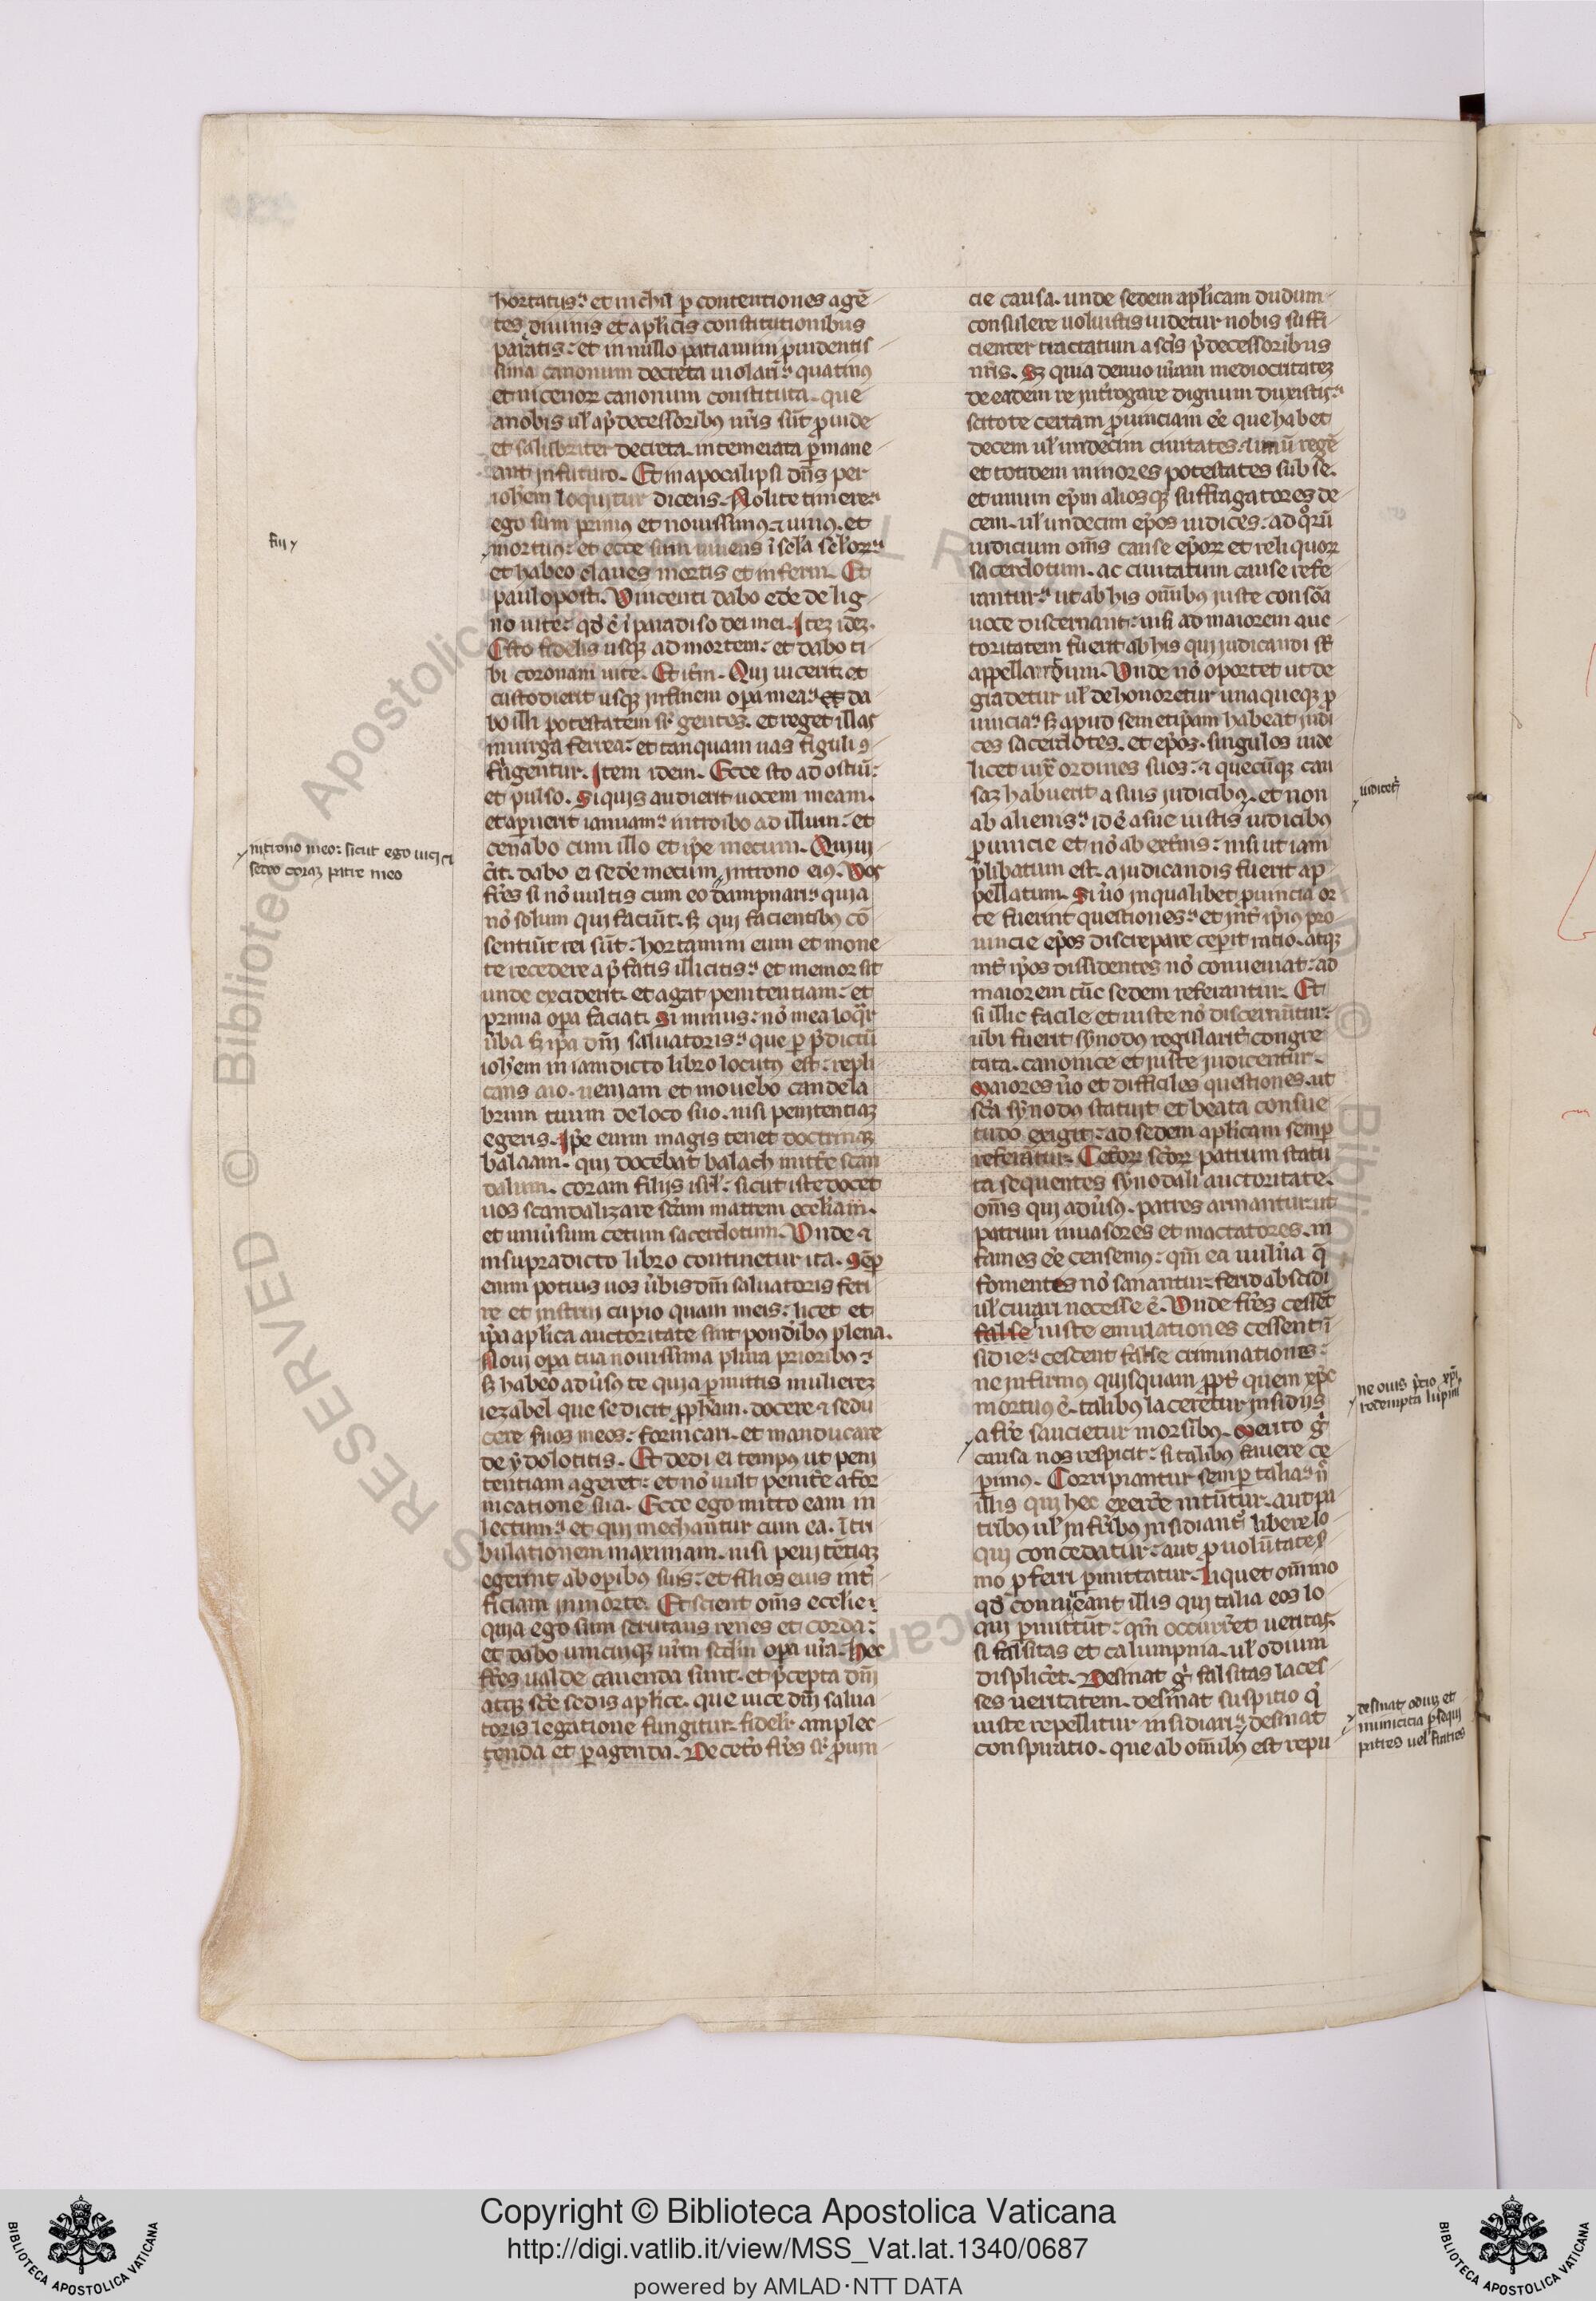 hortatus. et nichil ꝑ contentiones agē
tes diuinis et aplicis constitutionibus
paratis. et in nullo patiamini ꝓuidentis
sima canonum decreta uiolari. quatinꝰ
et nicenoꝝ canonum constituta. que
a nobis ul̓ a p̄decessoribꝰ nr̄is sūt ꝓuide
et salubriter decreta. intemerata ꝑmane
ant in futuro. Et in apocalipsi dn̄s per
ioh̄em loquitur dicens. Nolite timere.
ego sum primꝰ et nouissimꝰ. ⁊ uiuꝰ. et
mortuꝰ. et ecce sum uiuens ī scl̄a scl̄oꝝ.
et habeo claues mortis et inferni. Et
paulo post. Vincenti dabo ede de lig
no uite. qd̓ ē ī paradiso dei mei. Itez idez.
Esto fidelis usqꝫ ad mortem. et dabo ti
bi coronam uite. Et itm̄. Qui uicerit et
custodierit usqꝫ in finem oꝑa mea. da
bo illi potestatem sr̄ gentes. et reget illas
in uirga ferrea. et tanquam uas figuli 9
fr̄ingentur. Item idem. Ecce sto ad ostiū.
et pulso. Si quis audierit uocem meam.
et aꝑuerit ianuam. introibo ad illum. et
cenabo cum illo et ip̄e mecum. Qui ui
c̄it. dabo ei sede mecum in trono eiꝰ. Vos
fr̄es si nō uultis cum eo dampnari. quia
nō solum qui faciūt. sꝫ qui facientibꝰ cō
sentiūt rei sūt. hortamini eum et mone
te recedere a p̄fatis illicitis. et memor sit
unde exciderit. et agat penitentiam. et
prima oꝑa faciat. Si minus. nō mea loqr̄
ūba sꝫ ip̄a dn̄i saluatoris. que ꝑ p̄dictū
ioh̄em in iamdicto libro locutꝰ est. repli
cans aio. ueniam et mouebo candela
brum tuum de loco suo. nisi penitentiaꝫ
egeris. Ip̄e enim magis tenet doctrinaꝫ
balaam. qui docebat balach mitt̄e scan
dalum. coram filijs isrl̄. sicut iste docet
uos scandalizare scām matrem eccliam.
et uniūsum cetum sacerdotum. Vnde ⁊
in supradicto libro continetur ita. Sēꝑ
enim potius uos ūbis dn̄i saluatoris feri
re et instrui cupio quam meis. licet et
ip̄a aplica auctoritate sint pond̄ibus plena.
Noui oꝑa tua nouissima plura prioribꝰ.
sꝫ habeo adūsꝰ te quia ꝑmittis mulierez
iezabel que se dicit ꝓph̄am. docere ⁊ sedu
cere s̄uos meos. fornicari. et manducare
de ydolotitis. Et dedi ei tempꝰ ut peni
tentiam ageret. et nō uult penit̄e a for
nicatione sua. Ecce ego mitto eam in
lectum. et qui mechantur cum ea. ī tri
bulationem maximam. nisi penitētiaꝫ
egerint ab oꝑibus suis. et filios eius int̄
ficiam in morte. Et scient om̄s ecclie.
quia ego sum scrutans renes et corda.
et dabo unicuiqꝫ ur̄m scdm̄ oꝑa ur̄a. hec
fr̄es ualde cauenda sunt. et p̄cepta dn̄i
atqꝫ sc̄e sedis aplice. que uice dn̄i salua
toris legatione fungitur. fidelr̄ amplec
tenda et ꝑagenda. De cet̄o fr̄es sr̄ ꝓuin
fui
in trono meo. sicut ego uici ⁊
sedeo coraꝫ patre meo
cie causa. unde sedem aplicam dudum
consulere uoluistis uidetur nobis suffi
cienter tractatum a scīs p̄decessoribus
nr̄is. Sꝫ quia denuo nr̄am mediocritatez
de eadem re int̄rogare dignum duxistis.
scitote certam ꝓuinciam ee que habet
decem ul̓ undecim ciuitates. ⁊ unū regē
et totidem minores potestates sub se.
et unum ep̄m aliosqꝫ suffragatores de
cem. ul̓ undecim ep̄os iudices. ad qᵒrū
iudicium om̄s cause ep̄oꝝ et reliquoꝝ
sacerdotum. ac ciuitatum cause refe
rantur. ut ab his om̄ibꝰ iuste consōa
uoce discernant. nisi ad maiorem auc
toritatem fuerit ab his qui iudicandi st̄
appellandum. Vnde nō oportet ut de
gradetur ul̓ dehonoretur unaqueqꝫ ꝓ
uincia. sꝫ apud semetip̄am habeat iudi
ces sacerdotes. et ep̄os. singulos uide
licet iux̄ ordines suos. ⁊ quecūqꝫ cau
saꝫ habuerit a suis iudicibꝰ. et non
ab alienis. id ē a sue iustis iudicibꝰ
ꝓuincie et nō ab ext̄nis. nisi ut iam
p̄libatum est. a iudicandis fuerit ap
pellatum. Si ūo in qualibet ꝓuincia or
te fuerint questiones. et int̄ ip̄iꝰ pro
uincie ep̄os discrepare ceꝑit ratio. atqꝫ
int̄ ip̄os dissidentes nō conueniat. ad
maiorem tūc sedem referantur. Et
si illic facile et iuste nō discernūtur.
ubi fuerit synodꝰ regularit̄ congre
tata. canonice et iuste iudicentur.
Maiores ūo et difficiles questiones. ut
sc̄a synodꝰ statuit et beata consue
tudo exigit. ad sedem aplicam semꝑ
referantur. Cet̄oꝝ sc̄oꝝ patrum statu
ta sequentes synodali auctoritate.
om̄s qui adūsꝰ. patres armantur. ut
patrum inuasores et mactatores. in
fames ee censemꝰ. qm̄ ea uuln̄a q̄
fomentis nō sanantur. ferro abscidi
ul̓ curari necesse ē. Vnde fr̄es cessēt
false iuste emulationes cessent ī
sidie. cescent false criminationes.
ne infirmꝰ quisquam ꝓpt̄ quem xp̄c
mortuꝰ ē. talibꝰ laceretur insidijs
a fr̄e saucietur morsibꝰ. Merito g̊
causa nos respicit. si talibꝰ fauere ce
ꝑimꝰ. Corripiantur semꝑ talia. n̄
illis qui hec exerc̄e nitūtur. aut pa
tribꝰ ul̓ in fr̄ibꝰ insidiant̄ libere lo
qui concedatur. aut ꝓ uolūtate
mo ꝓferri ꝑmittatur. Liquet om̄ino
qd̓ conniueant illis qui talia eos lo
qui ꝑmittūt. qm̄ occurr̄et ueritas.
si falsitas et calumpnia. ul̓ odium
displic̄et. Desinat g̊ falsitas laces
ses ueritatem. desinat suspitio q̄
iuste repellitur insidiari. desinat
conspiratio. que ab om̄ibꝰ est repu
iudicet̄
ne ouis p̄cio xp̄i
redempta lupini
desinat odiuꝫ et
inimicicia ꝑsequi
patres uel fratres
Copyright © Biblioteca Apostolica Vaticana
http://digi.vatlib.it/view/MSS_Vat.lat.1340/0687
powered by AMLAD·NTT DATA
BIBLIOTECA APOSTOLICA VATICANA
BIBLIOTECA APOSTOLICA VATICANA